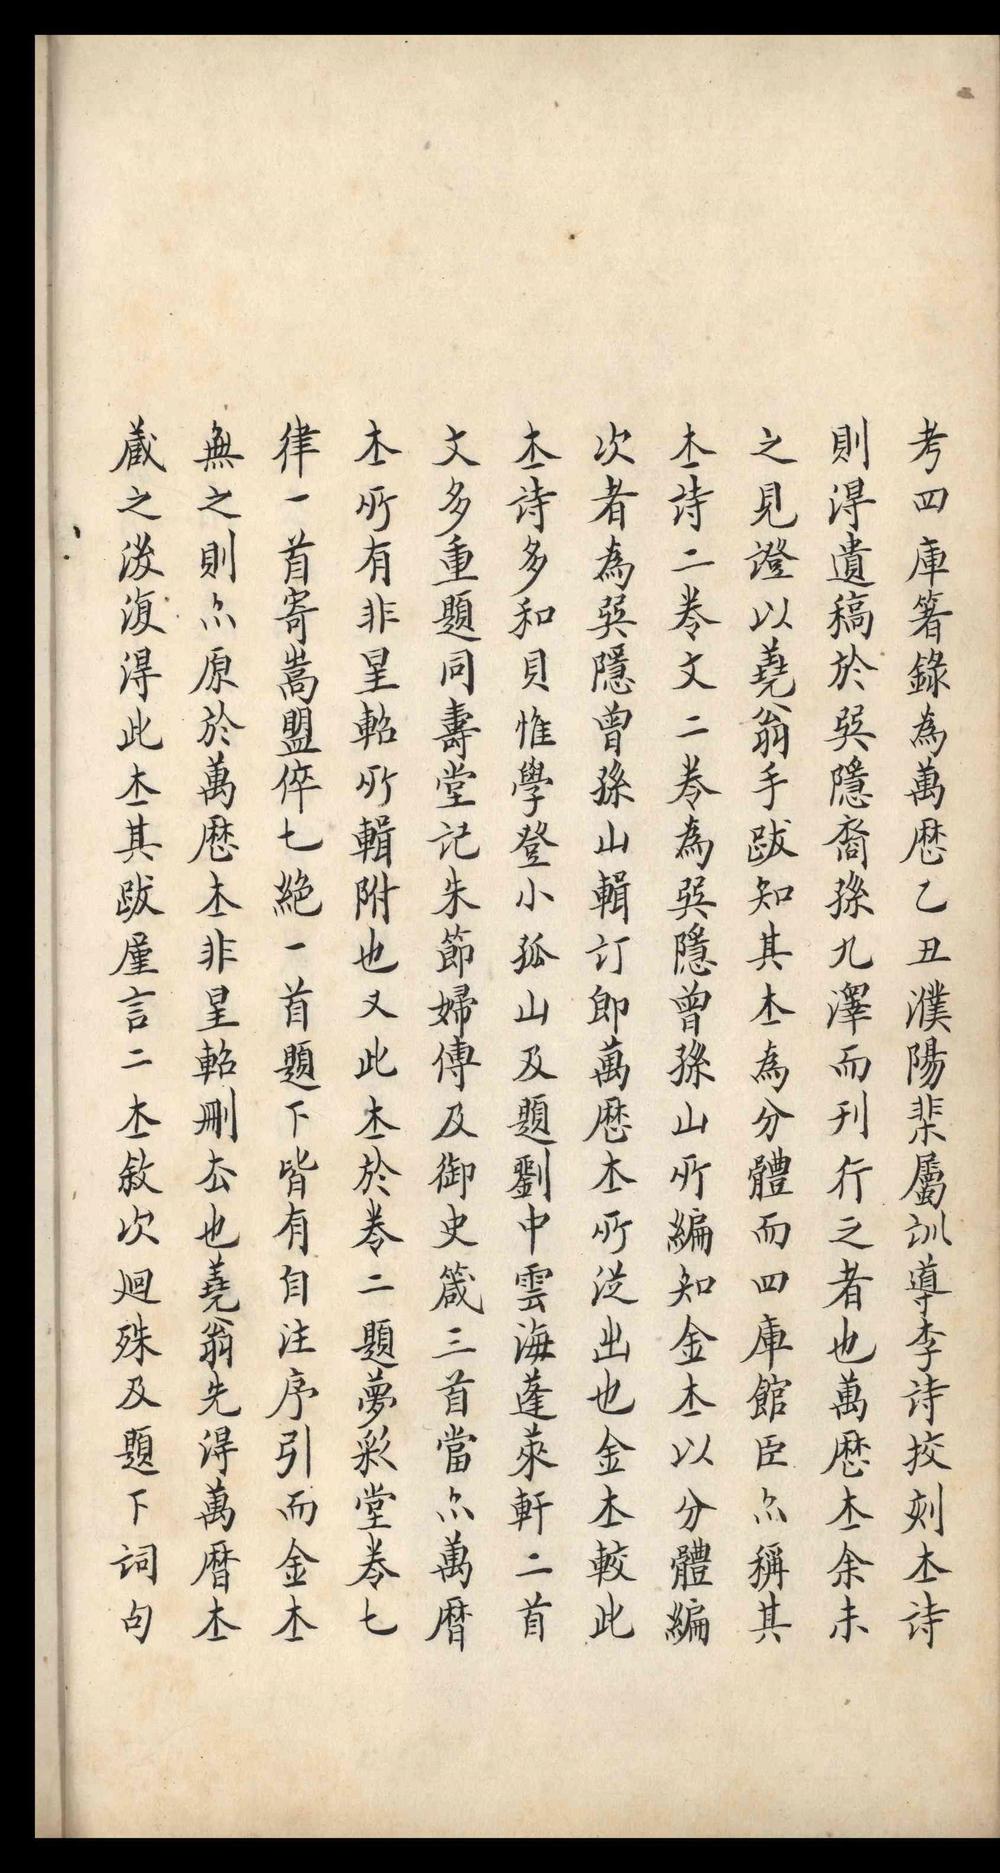 考四庫箸錄為萬厯乙丑濮陽棐屬訓導李詩挍刻本詩
則淂遺稿於吳隱裔孫九澤而刊行之者也萬厯本余未
之見證以蕘翁手跋知其本為分體而四庫館臣尒稱其
本詩二卷文二卷為吳隱曾孫山所編知金本以分體編
次者為吳隱曾孫山輯訂即萬厯本所從出也金本較此
本詩多和貝惟學登小孤山及題劉中雲海蓬萊軒二首
文多重題同壽堂記朱節婦傳及御史箴三首當尒萬曆
本所有非星軺所輯附也又此本於卷二題夢彩堂卷七
律一首寄嵩盟倅七絕一首題下皆有自注序引而金本
無之則尒原於萬厯本非星軺刪去也蕘翁先淂萬曆本
藏之後復淂此本其跋厪言二本敘次迴殊及題下詞句